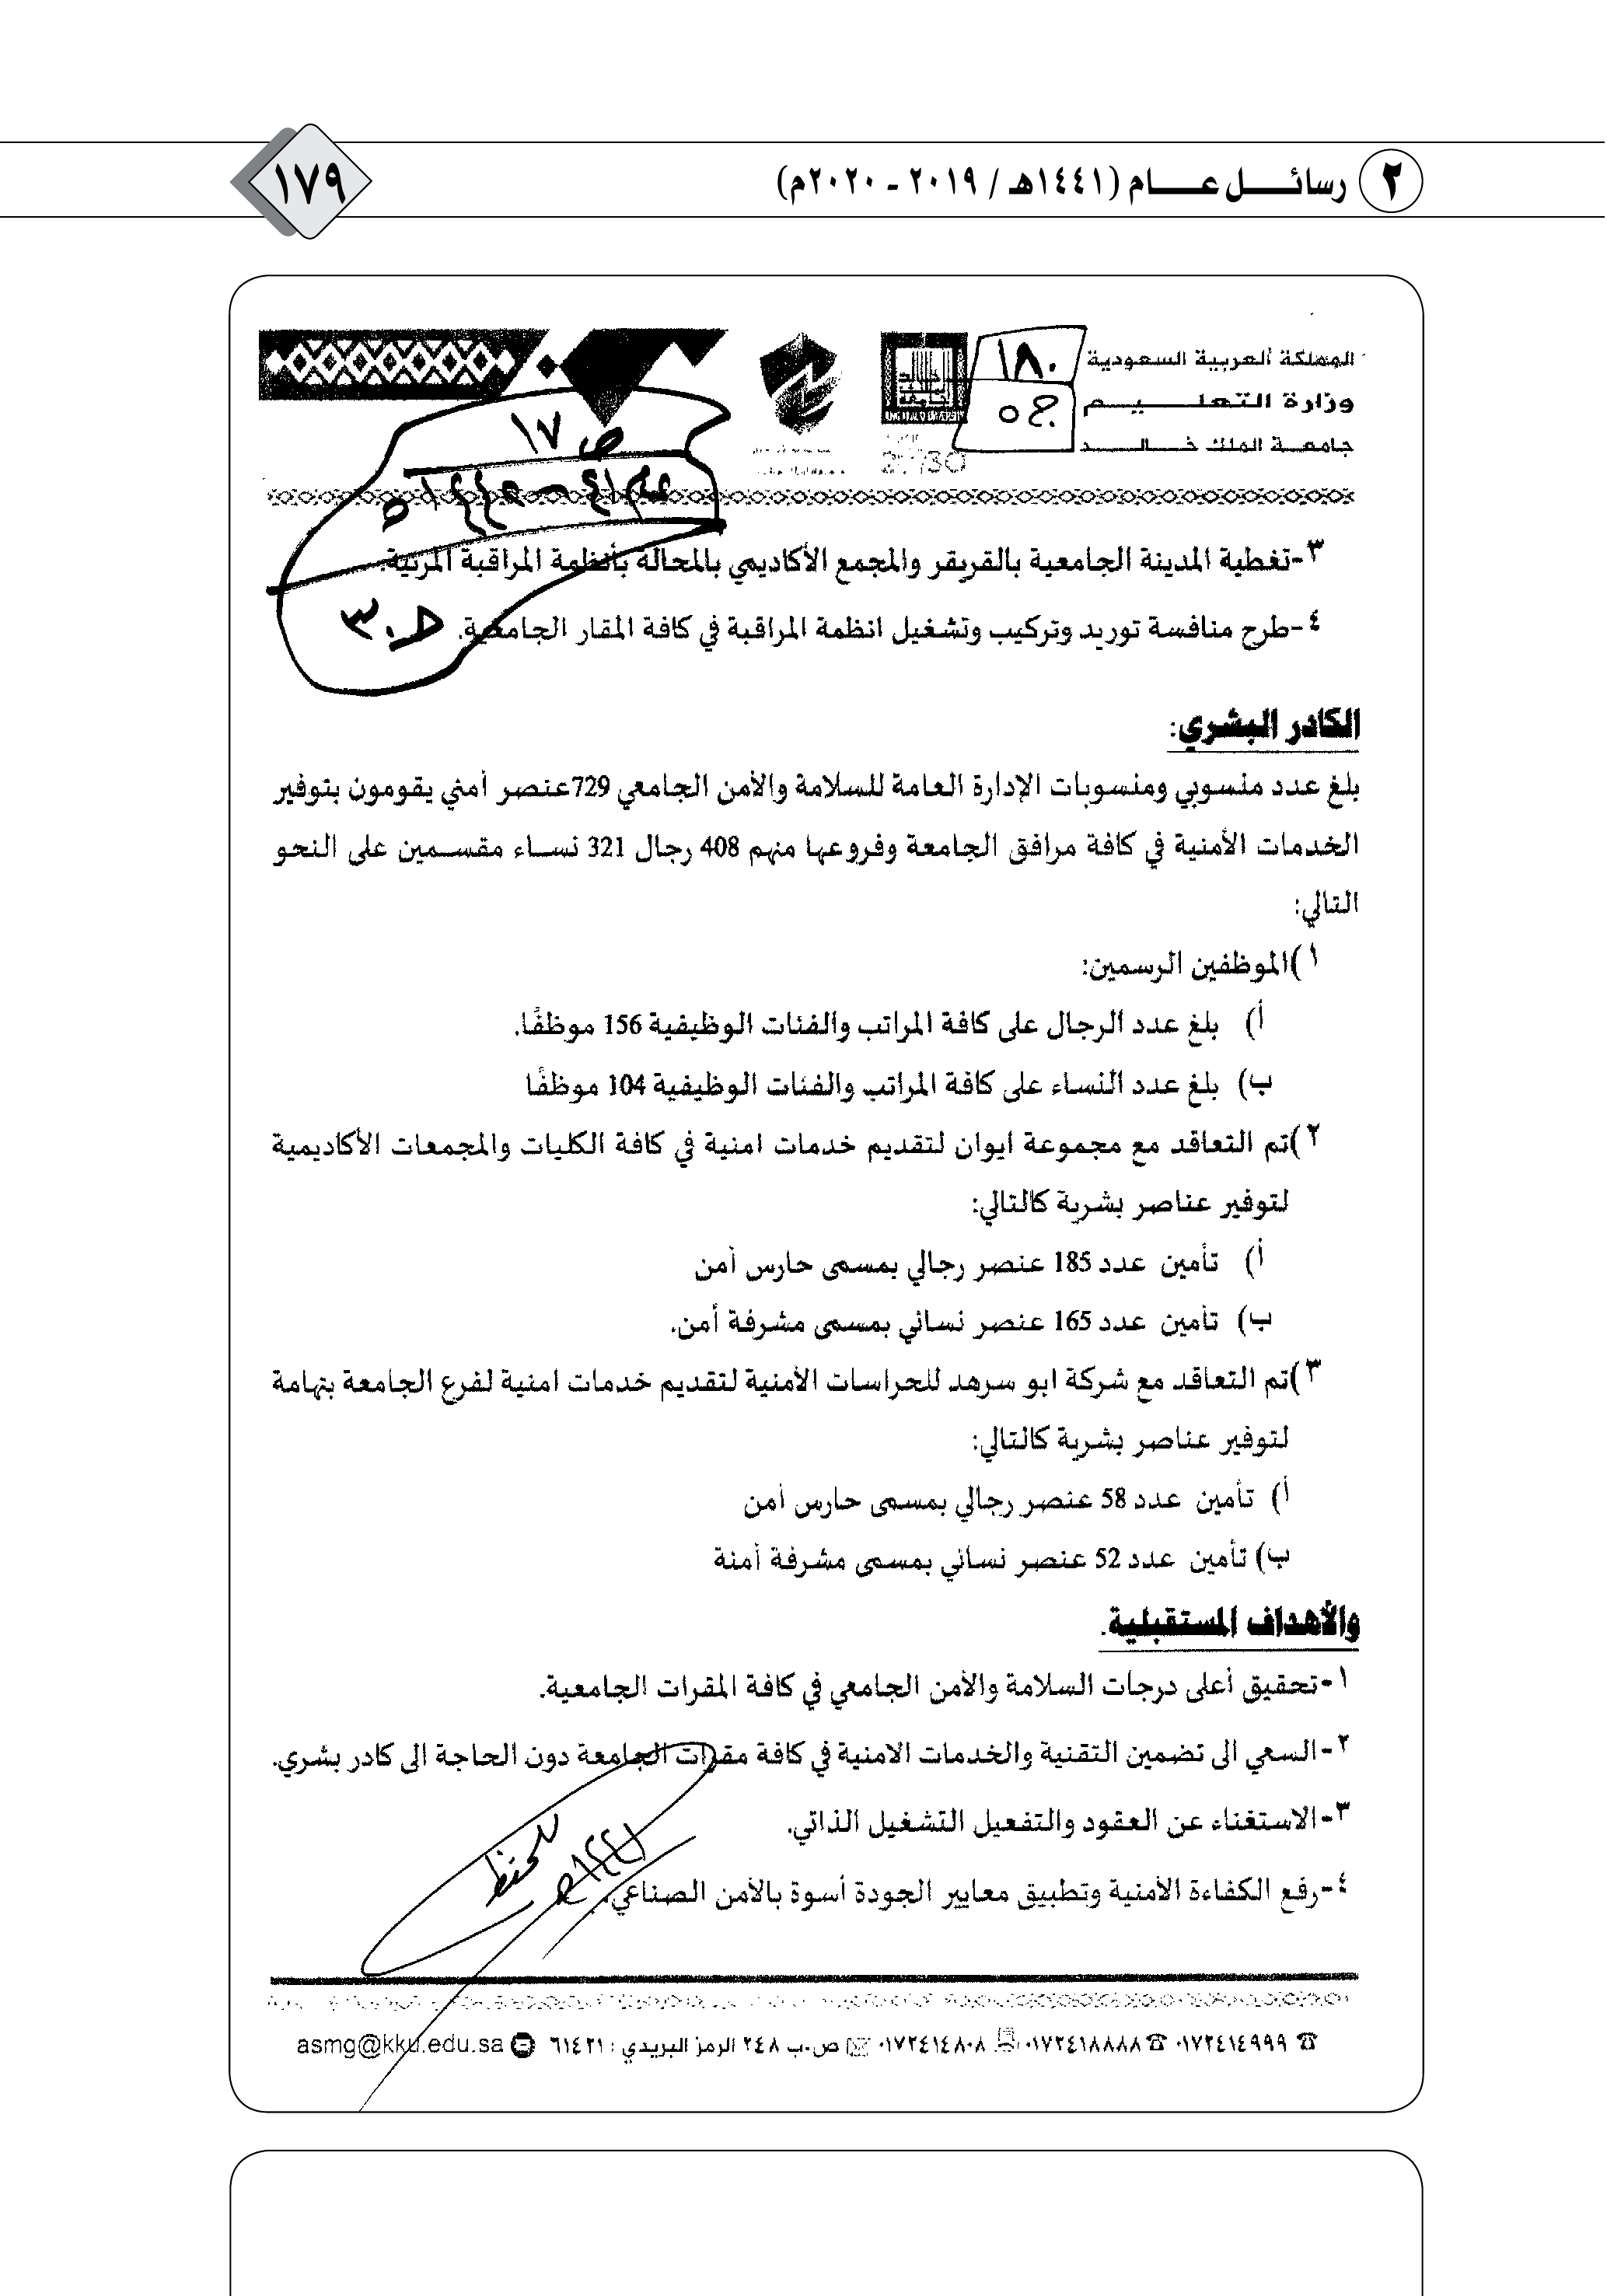 ٢ رسائـــل عـــام (١٤٤١هـ / ٢٠١٩ - ٢٠٢٠م)
١٧٩
المملكة العربية السعودية
وزارة التعليم
جامعة الملك خالد
١٨٠
ج ٥
ص ١٧
٣-تغطية المدينة الجامعية بالقريقر والمجمع الأكاديمي بالمحالة بأنظمة المراقبة المرئية.
٤-طرح منافسة توريد وتركيب وتشغيل انظمة المراقبة في كافة المقار الجامعية.
الكادر البشري:
بلغ عدد منسوبي ومنسوبات الإدارة العامة للسلامة والأمن الجامعي 729عنصر أمني يقومون بتوفير
الخدمات الأمنية في كافة مرافق الجامعة وفروعها منهم 408 رجال 321 نساء مقسمين على النحو
التالي:
١)الموظفين الرسمين:
أ) بلغ عدد الرجال على كافة المراتب والفئات الوظيفية 156 موظفًا.
ب) بلغ عدد النساء على كافة المراتب والفئات الوظيفية 104 موظفًا
٢)تم التعاقد مع مجموعة ايوان لتقديم خدمات امنية في كافة الكليات والمجمعات الأكاديمية
لتوفير عناصر بشرية كالتالي:
أ) تأمين عدد 185 عنصر رجالي بمسمى حارس أمن
ب) تأمين عدد 165 عنصر نسائي بمسمى مشرفة أمن.
٣)تم التعاقد مع شركة ابو سرهد للحراسات الأمنية لتقديم خدمات امنية لفرع الجامعة بتهامة
لتوفير عناصر بشرية كالتالي:
أ) تأمين عدد 58 عنصر رجالي بمسمى حارس أمن
ب) تأمين عدد 52 عنصر نسائي بمسمى مشرفة أمنة
والأهداف المستقبلية.
١-تحقيق أعلى درجات السلامة والأمن الجامعي في كافة المقرات الجامعية.
٢-السعي الى تضمين التقنية والخدمات الامنية في كافة مقرات الجامعة دون الحاجة الى كادر بشري.
٣-الاستغناء عن العقود والتفعيل التشغيل الذاتي.
٤-رفع الكفاءة الأمنية وتطبيق معايير الجودة أسوة بالأمن الصناعي.
للحفظ
٠١٧٢٤١٤٩٩٩ ٠١٧٢٤١٨٨٨٨ ٠١٧٢٤١٤٨٠٨ ص.ب ٢٤٨ الرمز البريدي : ٦١٤٢١ asmg@kku.edu.sa